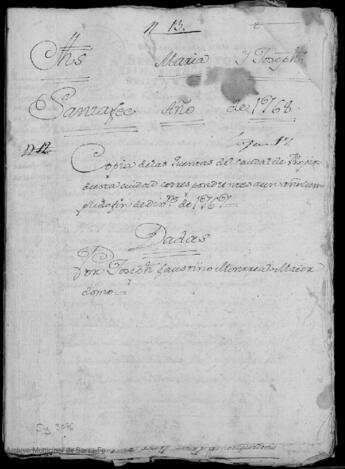 n 13.
Jhs Maria Y Joseph
Santafee Año de 1768
n 12
Copia de las Quentas del caudal de Propios
de esta ciudad correspondientes a un año cum
plido fin de Diz.re de 1767
Dadas
Por Joseph Faustino Monrreal Maior
domo
Archivo Municipal de Santa Fe